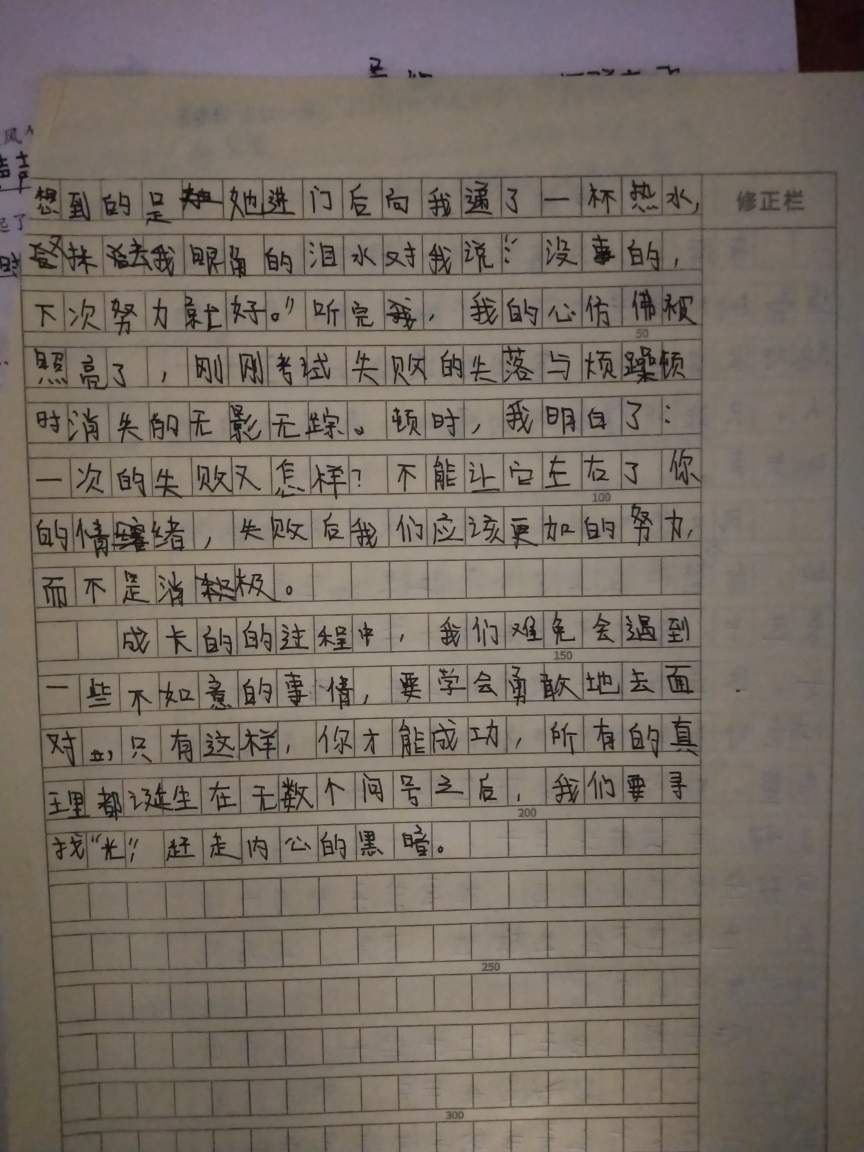 修正栏
想到的是她进门后向我递了一杯热水,
抹去我眼角的泪水对我说:“没事的,
下次努力就好。”听完我,我的心仿佛被
照亮了,刚刚考试失败的失落与烦躁顿
时消失的无影无踪。顿时,我明白了:
一次的失败又怎样?不能让它左右了你
的情绪,失败后我们应该更加的努力,
而不是消极。
成长的的过程中,我们难免会遇到
一些不如意的事情,要学会勇敢地去面
对,只有这样,你才能成功,所有的真
理都诞生在无数个问号之后,我们要寻
找“光”,赶走内心的黑暗。
50
100
150
200
250
300